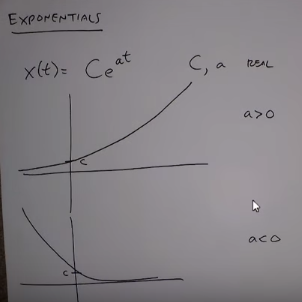 EXPONENTIALS
x(t) = Ce^{at} C, a REAL
a>0
c
a<0
c